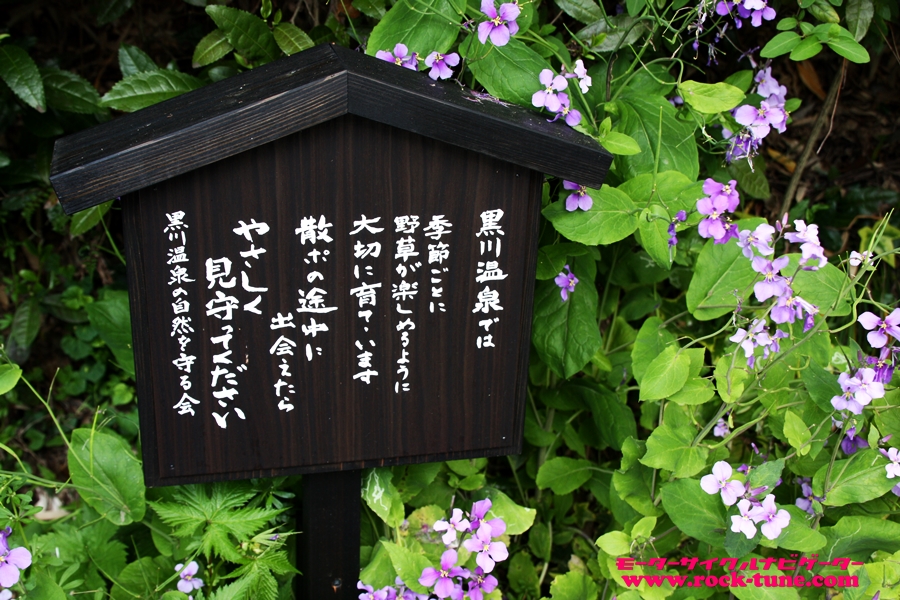 黒川温泉では
季節ごとに
野草が楽しめるように
大切に育てています
散歩の途中に
出会えたら
やさしく
見守ってください
黒川温泉の自然を守る会
モーターサイクルナビゲーター
www.rock-tune.com